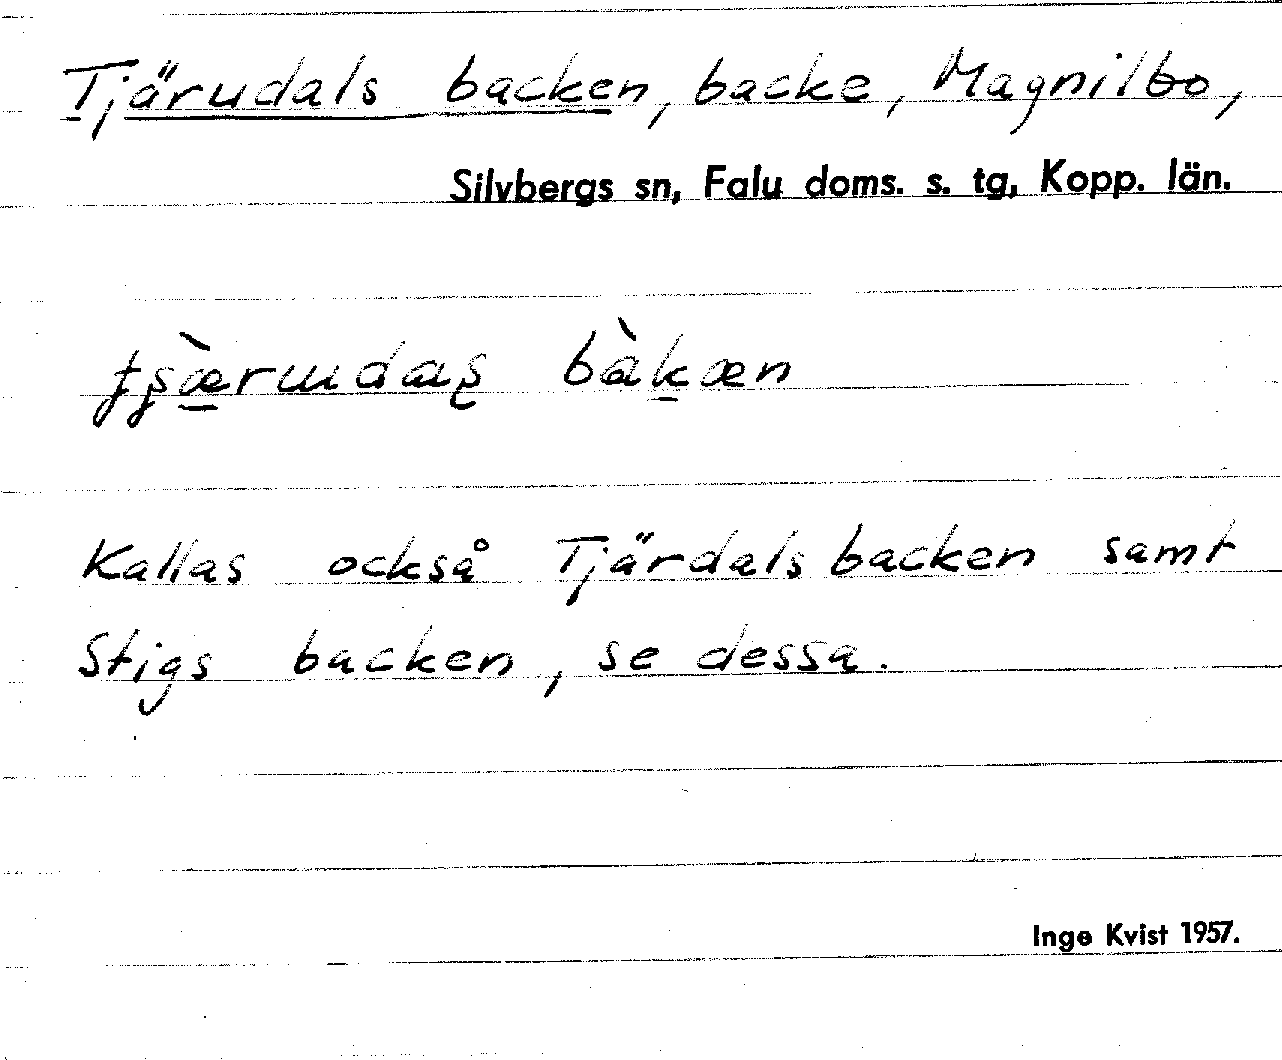 Tjärudals backen, backe, Magnilbo,
Silvbergs sn, Falu doms. s. tg, Kopp. län.
bàkæn
Kallas också Tjärdals backen samt
Stigs backen, se dessa.
Inge Kvist 1957.